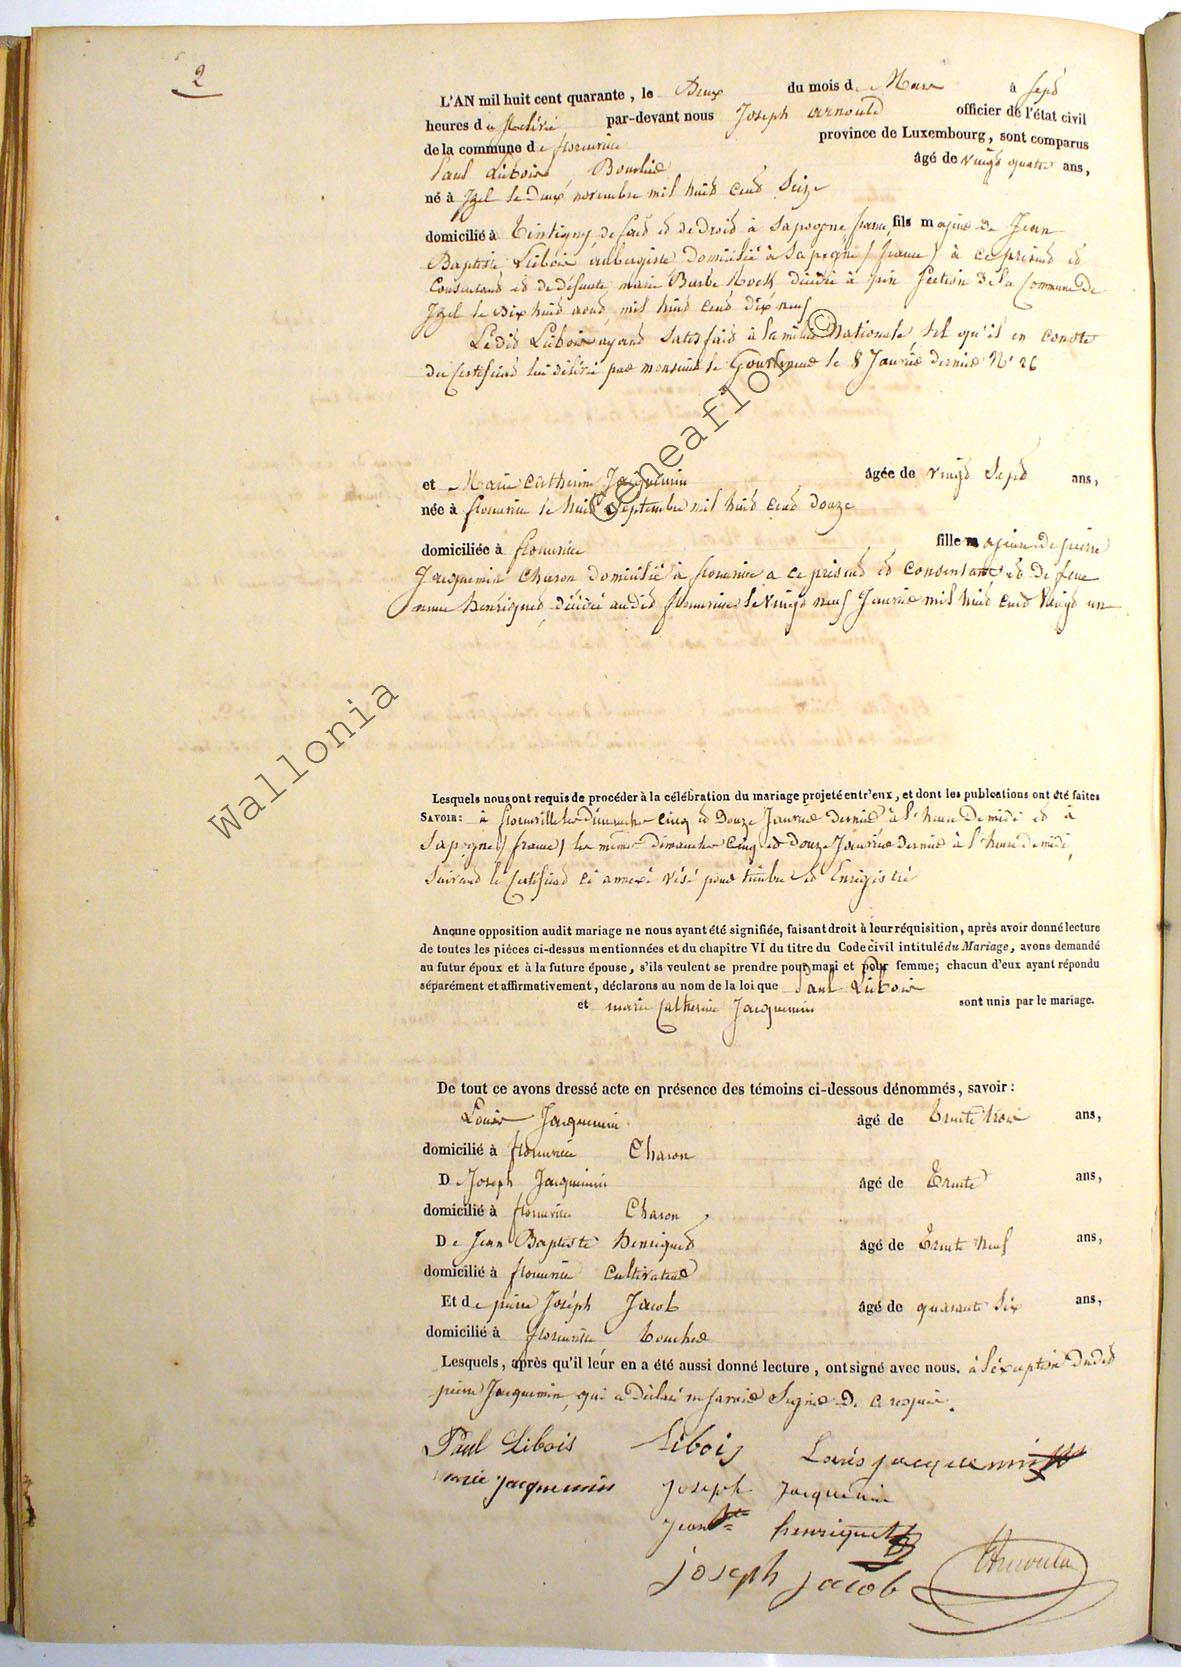 2
L'AN mil huit cent quarante, le Deux du mois de Mars à sept
heures de relevée par-devant nous Joseph Arnould officier de l'état civil
de la commune de florenville province de Luxembourg, sont comparus
Paul Libois Bourlier âgé de vingt quatre ans,
né à Izel le deux novembre mil huit cent Seize
domicilié à Tintigny de fait et de Droit à Sapogne france, fils majeur de Jean
Baptiste Libois aubergiste domicilié à Sapogne (france) à ce présent et
Consentant et de défunte marie Barbe décédée à pin Section de la Commune de
Izel le dix huit aout mil huit cent dix neuf
Ledit Libois ayant satisfait à la milice Nationale, tel qu'il en conste
du Certificat lui délivré par monsieur le Gouverneur le 8 Janvier dernier N° 26
et Marie Catherine Jacquemin âgée de vingt Sept ans,
née à florenville le huit Septembre mil huit cent Douze
domiciliée à florenville fille majeure de pierre
Jacquemin Charon domicilié à florenville a ce présent et Consentant et de feue
Henriquet, décédée audit florenville le vingt neuf Janvier mil huit cent vingt un
Lesquels nous ont requis de procéder à la célébration du mariage projeté entr'eux, et dont les publications ont été faites
SAVOIR: à florenville les Dimanches Cinq et Douze Janvier dernier à l'heure de midi et à
Sapogne (france) les mêmes dimanches Cinq et douze Janvier dernier à l'heure de midi,
Suivant le Certificat ci annexé visé pour timbre et Enregistré
Aucune opposition audit mariage ne nous ayant été signifiée, faisant droit à leur réquisition, après avoir donné lecture
de toutes les pièces ci-dessus mentionnées et du chapitre VI du titre du Code civil intitulé du Mariage, avons demandé
au futur époux et à la future épouse, s'ils veulent se prendre pour mari et pour femme; chacun d'eux ayant répondu
séparément et affirmativement, déclarons au nom de la loi que Paul Libois
et marie Catherine Jacquemin sont unis par le mariage.
De tout ce avons dressé acte en présence des témoins ci-dessous dénommés, savoir:
Louis Jacquemin âgé de Trente trois ans,
domicilié à florenville Charon
De Joseph Jacquemin âgé de Trente ans,
domicilié à florenville Charon
De Jean Baptiste Henriquet âgé de Trente Neuf ans,
domicilié à florenville Cultivateur
Et de pierre Joseph Jacob âgé de quarante Six ans,
domicilié à florenville Boucher
Lesquels, après qu'il leur en a été aussi donné lecture, ont signé avec nous. à l'exception dudit
pierre Jacquemin, qui a déclaré ne savoir Signer De ce requis.
Paul Libois Libois Louis jacquemin
marie jacquemin Joseph Jacquemin
Jean Bte henriquet
joseph jacob Arnould
Wallonia Geneaflor ©